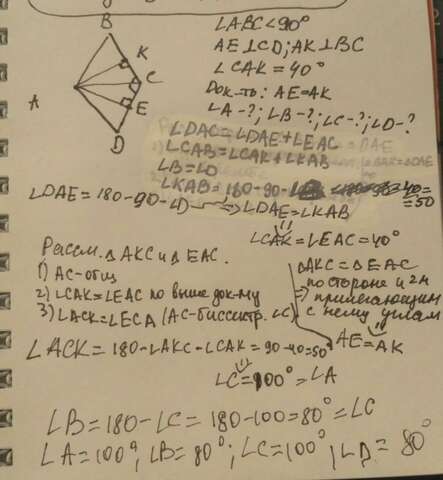 B
K
C
A
E
D
∠ABC<90°
AE⊥CD; AK⊥BC
∠CAK=40°
Док-ть: AE=AK
∠A-?; ∠B-?; ∠C-?; ∠D-?
∠DAC=∠DAE+∠EAC
∠CAB=∠CAK+∠KAB
∠B=∠D
∠KAB=180-90-
40=
=50
∠DAE=180-90-∠D ⇒ ∠DAE=∠KAB
∠CAK=∠EAC=40°
Рассм. △AKC и △EAC.
1) AC-общ
2) ∠CAK=∠EAC по выше док-му
3) ∠ACK=∠ECA (AC-биссектр. ∠C)
△AKC=△EAC
по стороне и 2м
⇒ прилегающим
с нему углам
AE=AK
∠ACK=180-∠AKC-∠CAK=90-40=50°
∠C=100°=∠A
∠B=180-∠C=180-100=80°=∠C
∠A=100°, ∠B=80°; ∠C=100°, ∠D=80°